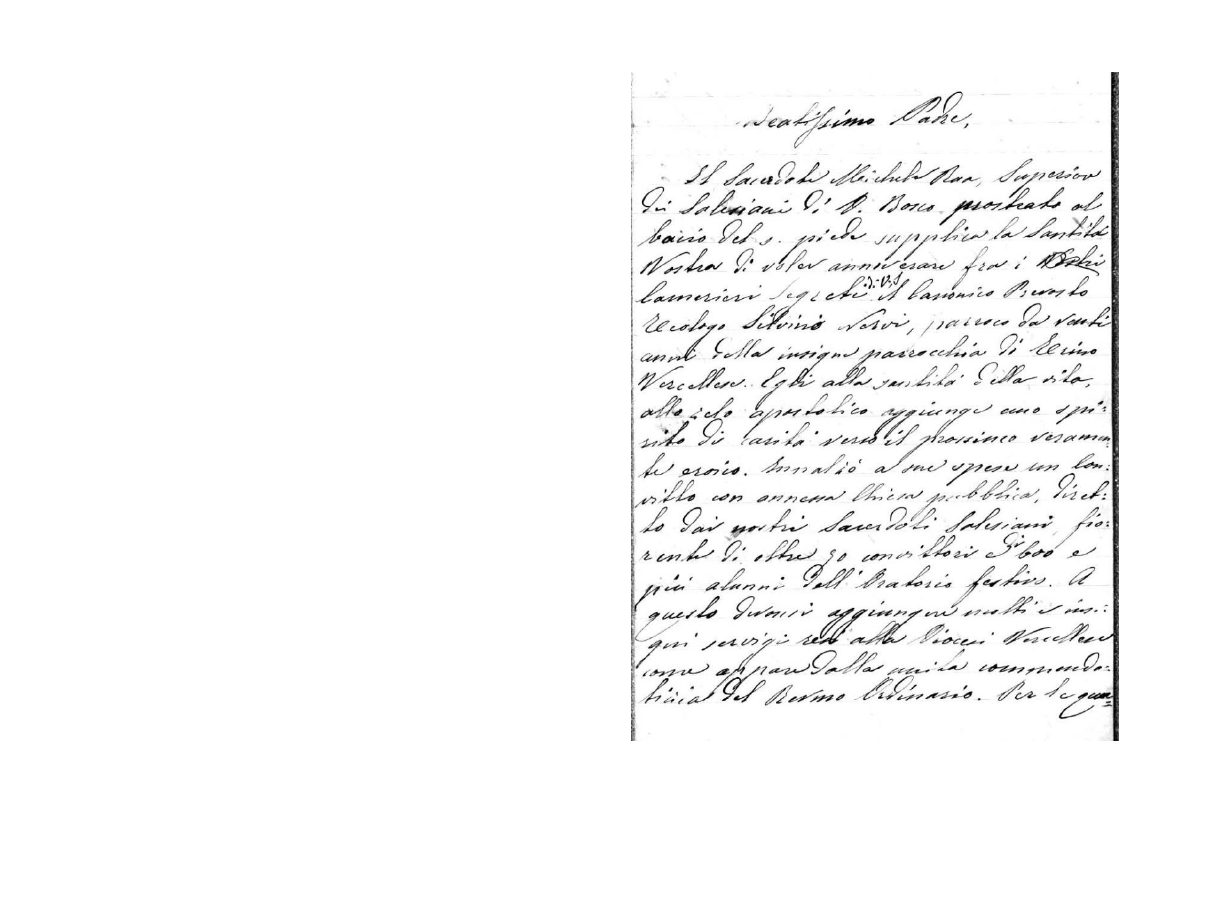 Beatissimo Padre,
Il Sacerdote Michele Rua, Superiore
dei Salesiani di D. Bosco prostrato al
bacio del s. piede supplica la Santità
Vostra di voler annoverare fra i Vostri
Camerieri Segreti di V. S. il Canonico Prevosto
Teologo Silvino Nervi, parroco da venti
anni della insigne parrocchia di Trino
Vercellese. Egli alla santità della vita,
allo zelo apostolico aggiunge uno spi-
rito di carità verso il prossimo veramen-
te eroico. Innalzò a sue spese un Con-
vitto con annessa Chiesa pubblica, diret-
to dai nostri Sacerdoti Salesiani, fio-
rente di oltre 90 convittori e di 600 e
più alunni dell'Oratorio festivo. A
questo devonsi aggiungere molti e insi-
gni servigi resi alla Diocesi Vercellese
come appare dalla unita commenda-
tizia del Revmo Ordinario. Per le qua-